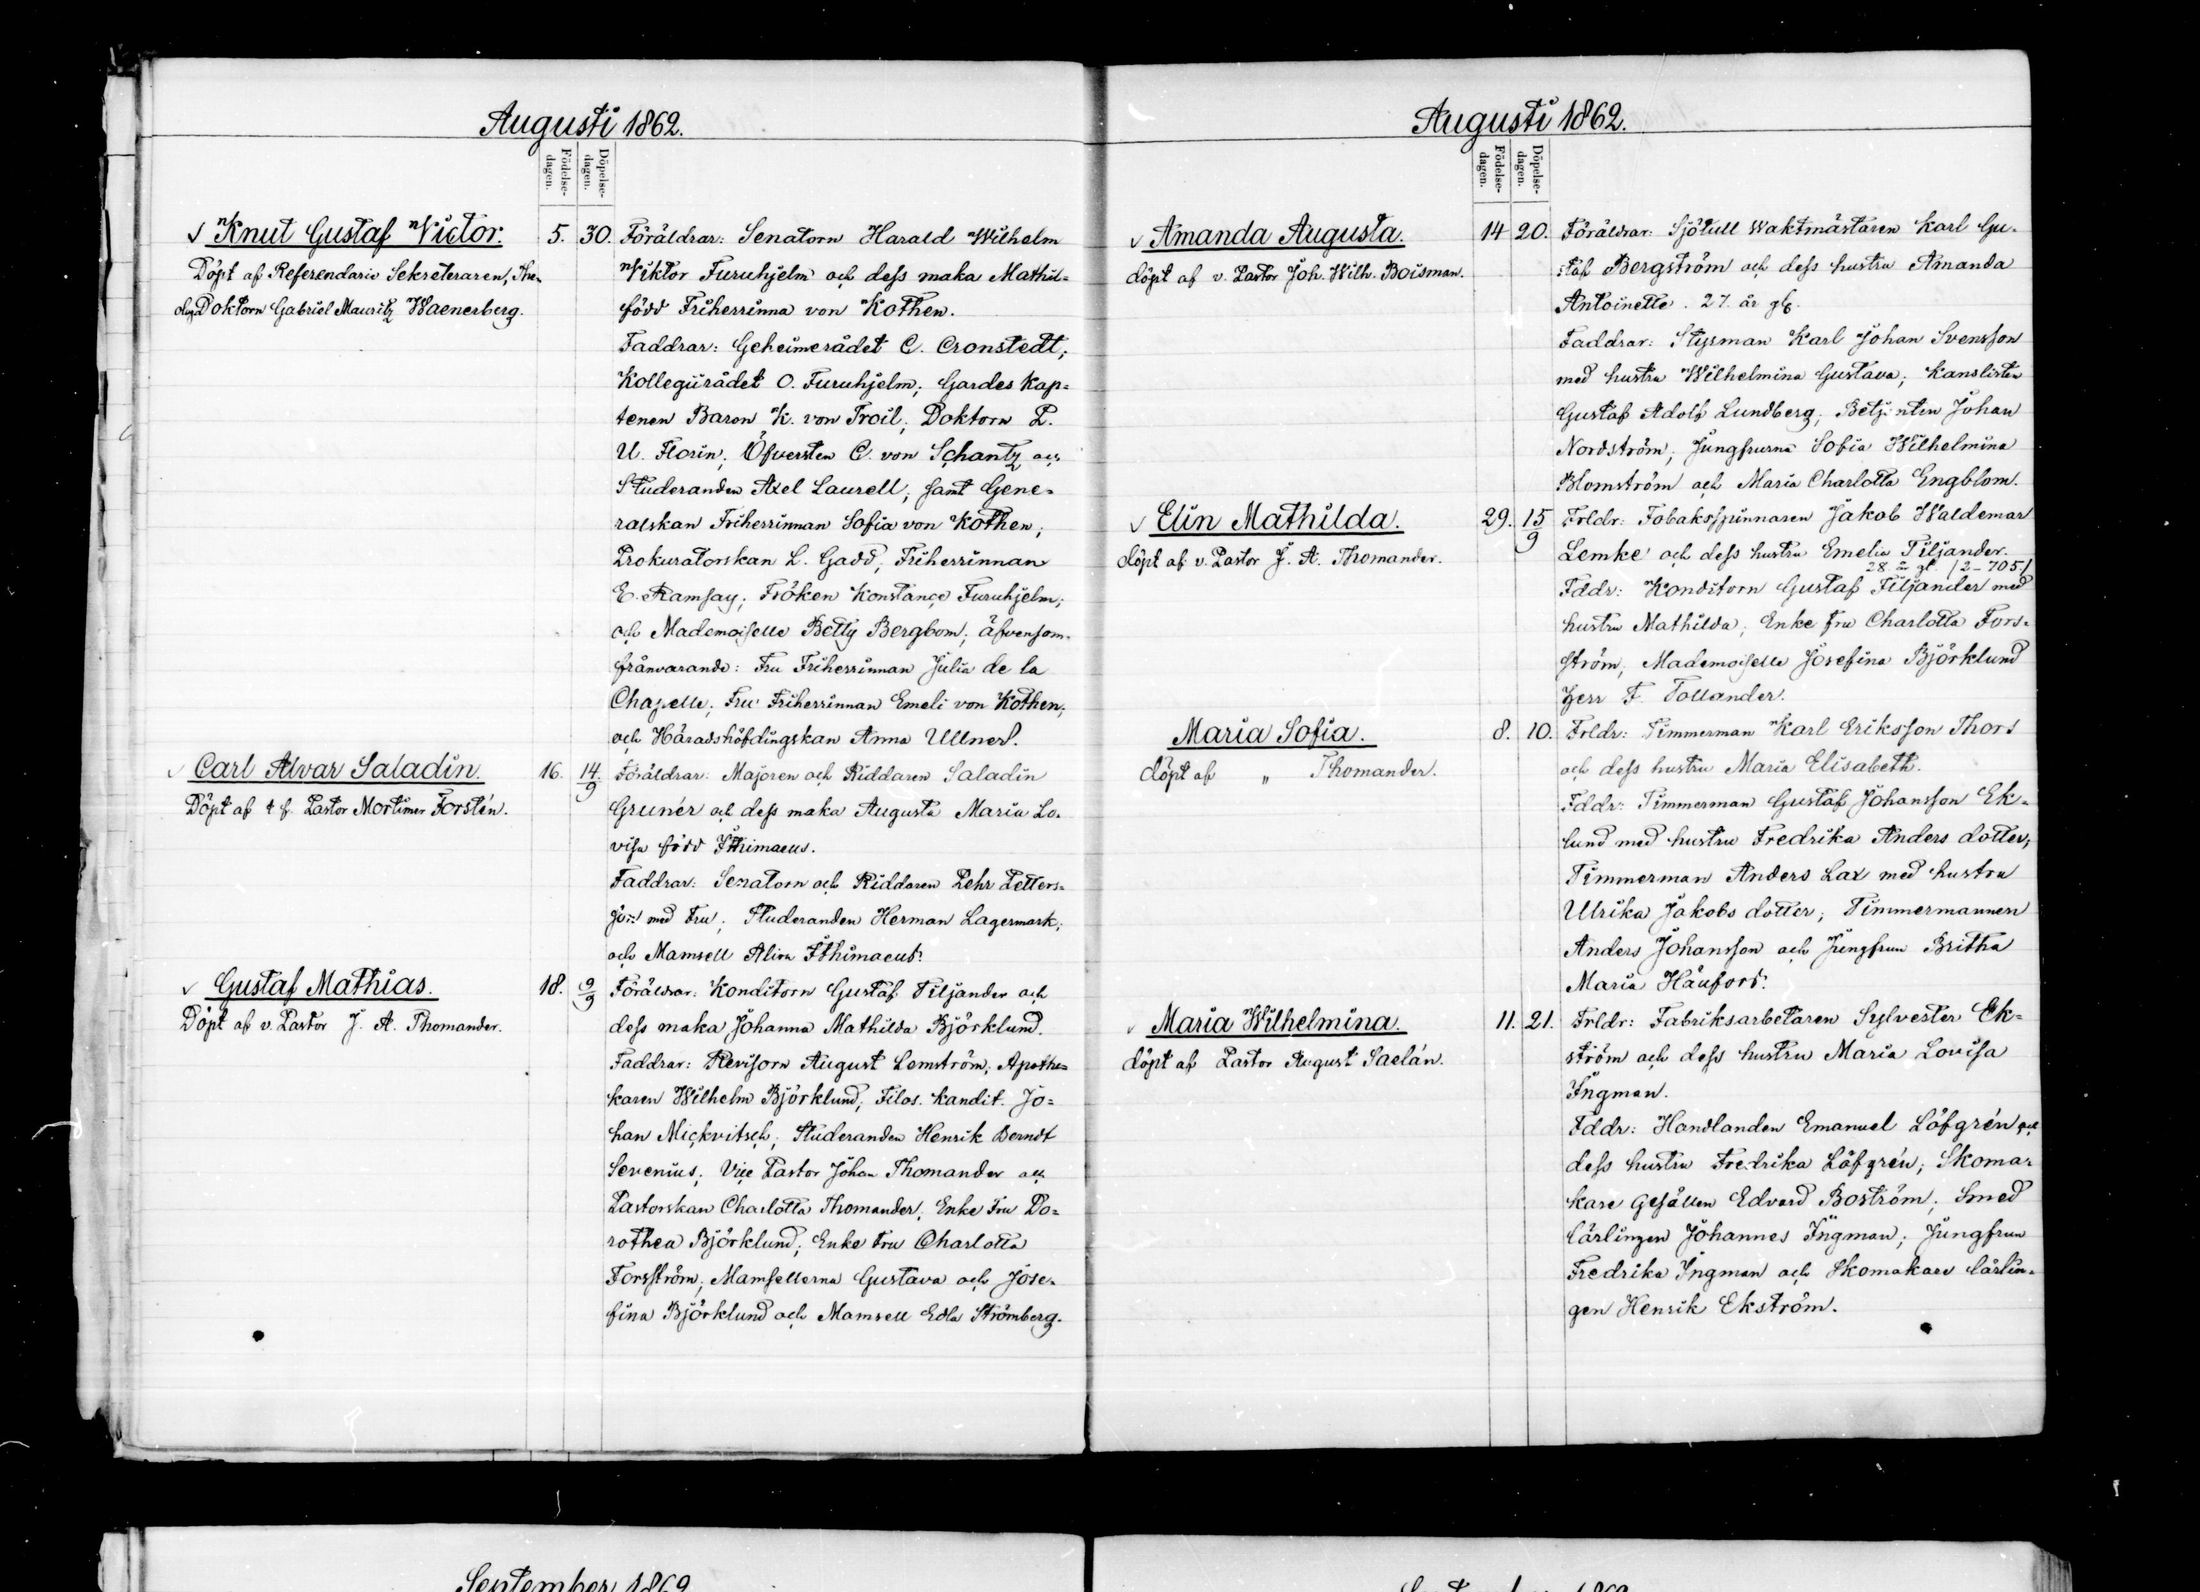 Augusti 1862.
Födelse-
dagen.
Döpelse-
dagen.
Knut Gustaf Victor. 5. 30.
Döpt af Referendarie Sekreteraren, Theo-
logiæ Doktorn Gabriel Mauritz Waenerberg.
Föräldrar: Senatorn Harald Wilhelm
Viktor Furuhjelm och dess maka Mathil-
född Friherrinna von Kothen.
Faddrar: Geheimerådet C. Cronstedt;
Kollegiirådet O. Furuhjelm; Gardes Kap-
tenen Baron K. von Troil; Doktorn P.
U. Florin; Öfversten C. von Schantz och
Studeranden Axel Laurell; samt Gene-
ralskan Friherrinnan Sofia von Kothen;
Prokuratorskan L. Gadd; Friherrinnan
E. Ramsay; Fröken Konstance Furuhjelm;
och Mademoiselle Betty Bergbom; äfvensom
frånvarande: Fru Friherrinnan Julia de la
Chapelle; Fru Friherrinnan Emeli von Kothen;
och Häradshöfdingskan Anna Ullner.
Carl Alvar Saladin. 16. 14/9
Döpt af t. f. Pastor Mortimer Forstén.
Föräldrar: Majoren och Riddaren Saladin
Grunér och dess maka Augusta Maria Lo-
visa född Ithimaeus.
Faddrar: Senatorn och Riddaren Pehr Petters-
son med Fru; Studeranden Herman Lagermark;
och Mamsell Alina Ithimaeus.
Gustaf Mathias. 18. 9/9
Döpt af v. Pastor J. A. Thomander.
Föräldrar: Konditorn Gustaf Tiljander och
dess maka Johanna Mathilda Björklund.
Faddrar: Revisorn August Lemström; Apothe-
karen Wilhelm Björklund; Filos. Kandit. Jo-
han Mickvitsch; Studeranden Henrik Berndt
Sevenius; Vice Pastor Johan Thomander och
Pastorskan Charlotta Thomander; Enke Fru Do-
rothea Björklund; Enke Fru Charlotta
Forsström; Mamsellerna Gustava och Jose-
fina Björklund och Mamsell Edla Strömberg.
Augusti 1862.
Födelse-
dagen.
Döpelse-
dagen.
Amanda Augusta. 14 20.
döpt af v. Pastor Joh. Wilh. Boisman.
Föräldrar: Sjötull Waktmästaren Karl Gu-
staf Bergström och dess hustru Amanda
Antoinette. 27. år gl.
Faddrar: Styrman Karl Johan Svensson
med hustru Wilhelmina Gustava; Kanslisten
Gustaf Adolf Lundberg; Betjenten Johan
Nordström; Jungfrurna Sofia Wilhelmina
Blomström och Maria Charlotta Engblom.
Elin Mathilda. 29. 15/9
döpt af v. Pastor J. A. Thomander.
Frldr: Tobaksspinnaren Jakob Waldemar
Lemke och dess hustru Emelia Tiljander.
28. år gl. (2-705)
Fddr: Konditorn Gustaf Tiljander med
hustru Mathilda; Enke Fru Charlotta Fors-
ström; Mademoiselle Josefina Björklund
Herr F. Tollander.
Maria Sofia. 8. 10.
döpt af „ Thomander.
Frldr: Timmerman Karl Eriksson Thors
och dess hustru Maria Elisabeth.
Fddr: Timmerman Gustaf Johansson Ek-
lund med hustru Fredrika Anders dotter;
Timmerman Anders Lax med hustru
Ulrika Jakobs dotter; Timmermannen
Anders Johansson och Jungfrun Britha
Maria Häufors.
Maria Wilhelmina. 11. 21.
döpt af Pastor August Saelán.
Frldr: Fabriksarbetaren Sylvester Ek-
ström och dess hustru Maria Lovisa
Ingman.
Fddr: Handlanden Emanuel Löfgrén och
dess hustru Fredrika Löfgrén; Skoma-
kare Gesällen Edvard Boström; Smed
lärlingen Johannes Ingman; Jungfrun
Fredrika Ingman och Skomakare lärlin-
gen Henrik Ekström.
September 1862